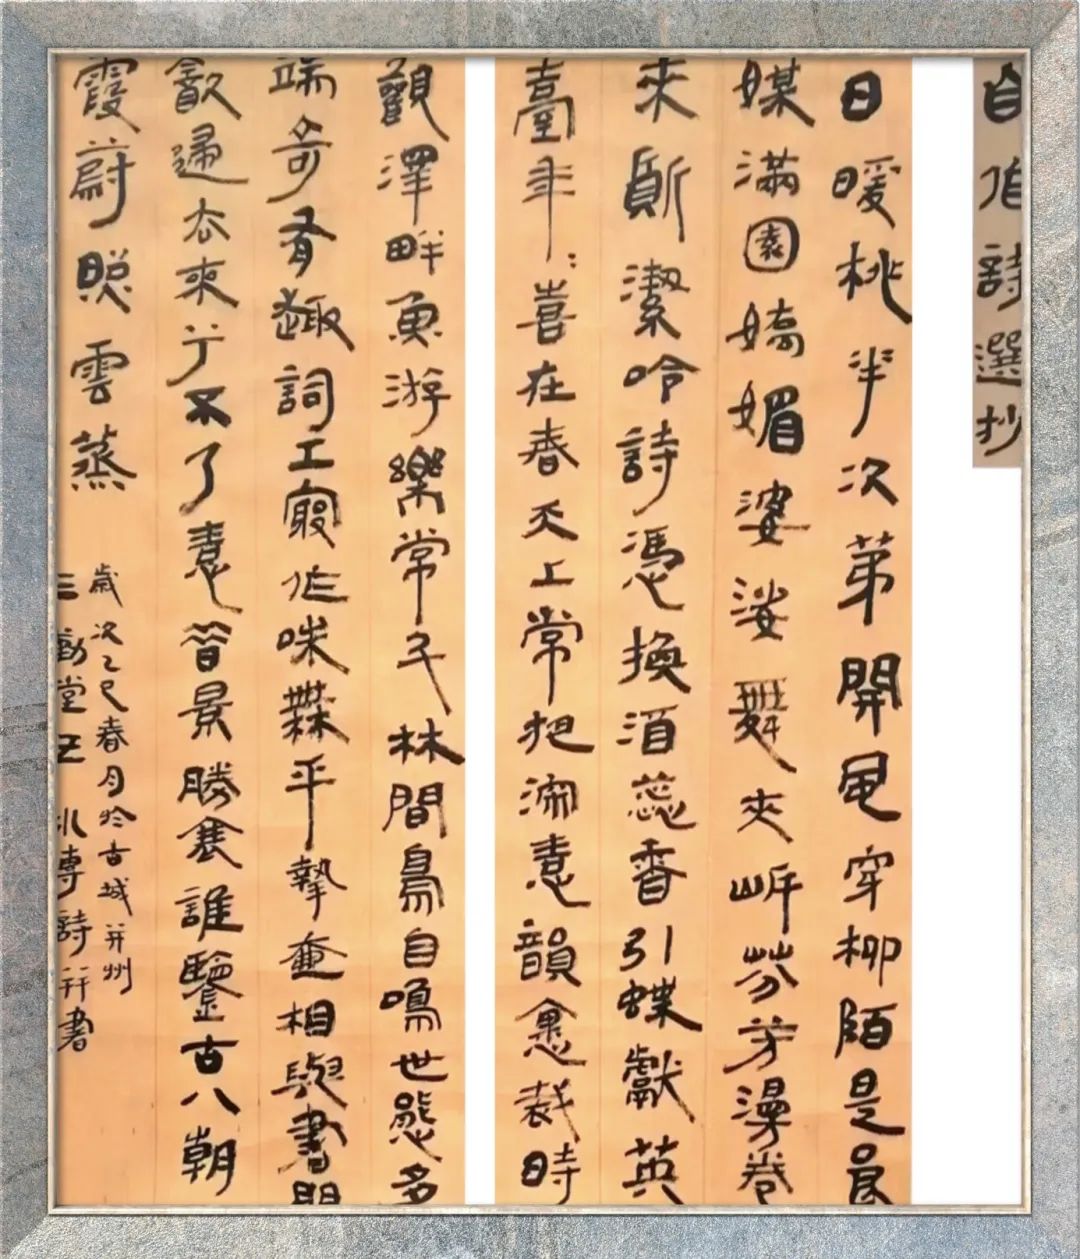 自作詩選抄
日暖桃半次第開風穿柳陌是良
媒滿園嬌媚婆娑舞夾岸芬芳漫卷
來斷潔吟詩憑換酒蕊香引蝶獻英
臺年年喜在春天上常把滿意韻愈裁時
觀澤畔魚游樂常久林間鳥自鳴世態多
端奇有趣詞工寂作咪無平摯直相與書間
歸衣來兮不了意昔景勝裹誰鑒古八朝
霞蔚照雲蒸
歲次乙巳春月於古城并州
三勸堂主 詩并書